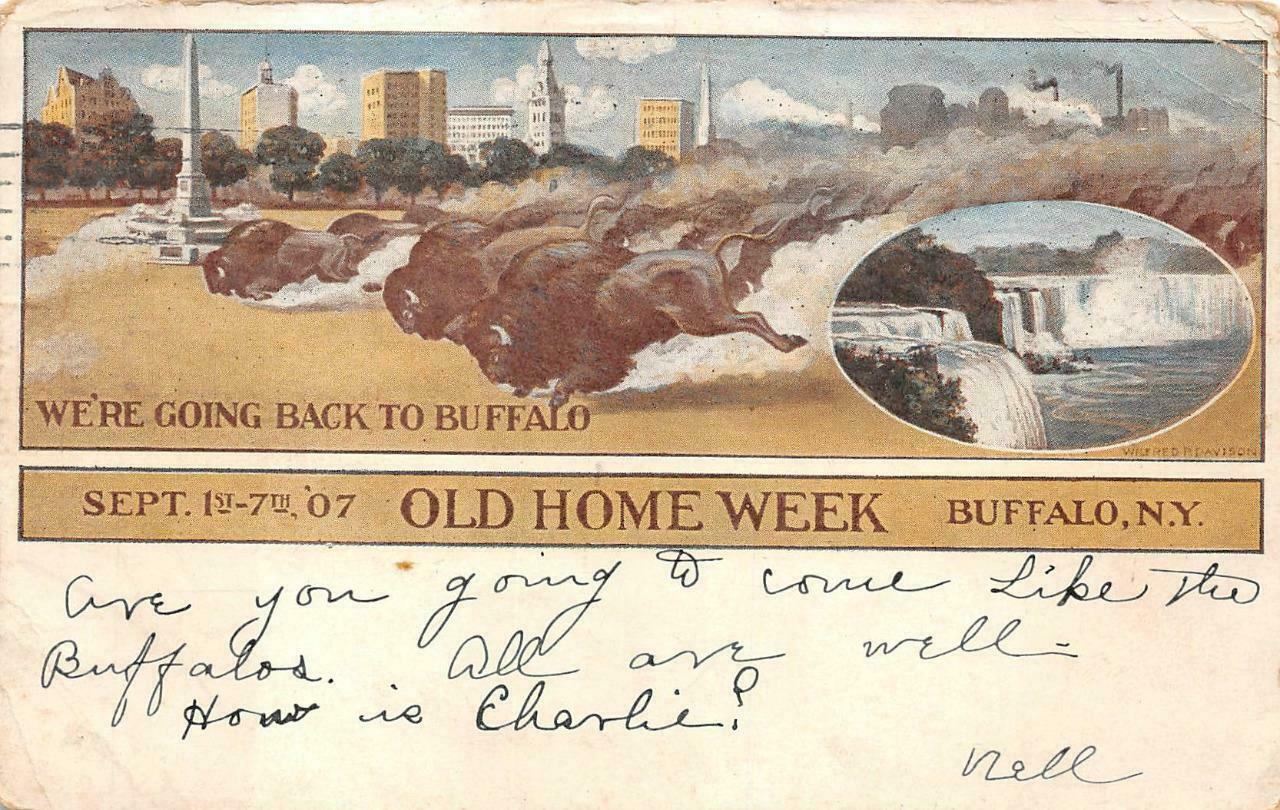 WE'RE GOING BACK TO BUFFALO
WILFRED R. DAVISON
SEPT. 1ST-7TH, '07 OLD HOME WEEK BUFFALO, N.Y.
Are you going to come Like The
Buffalos. All are well-
How is Charlie?
Nell